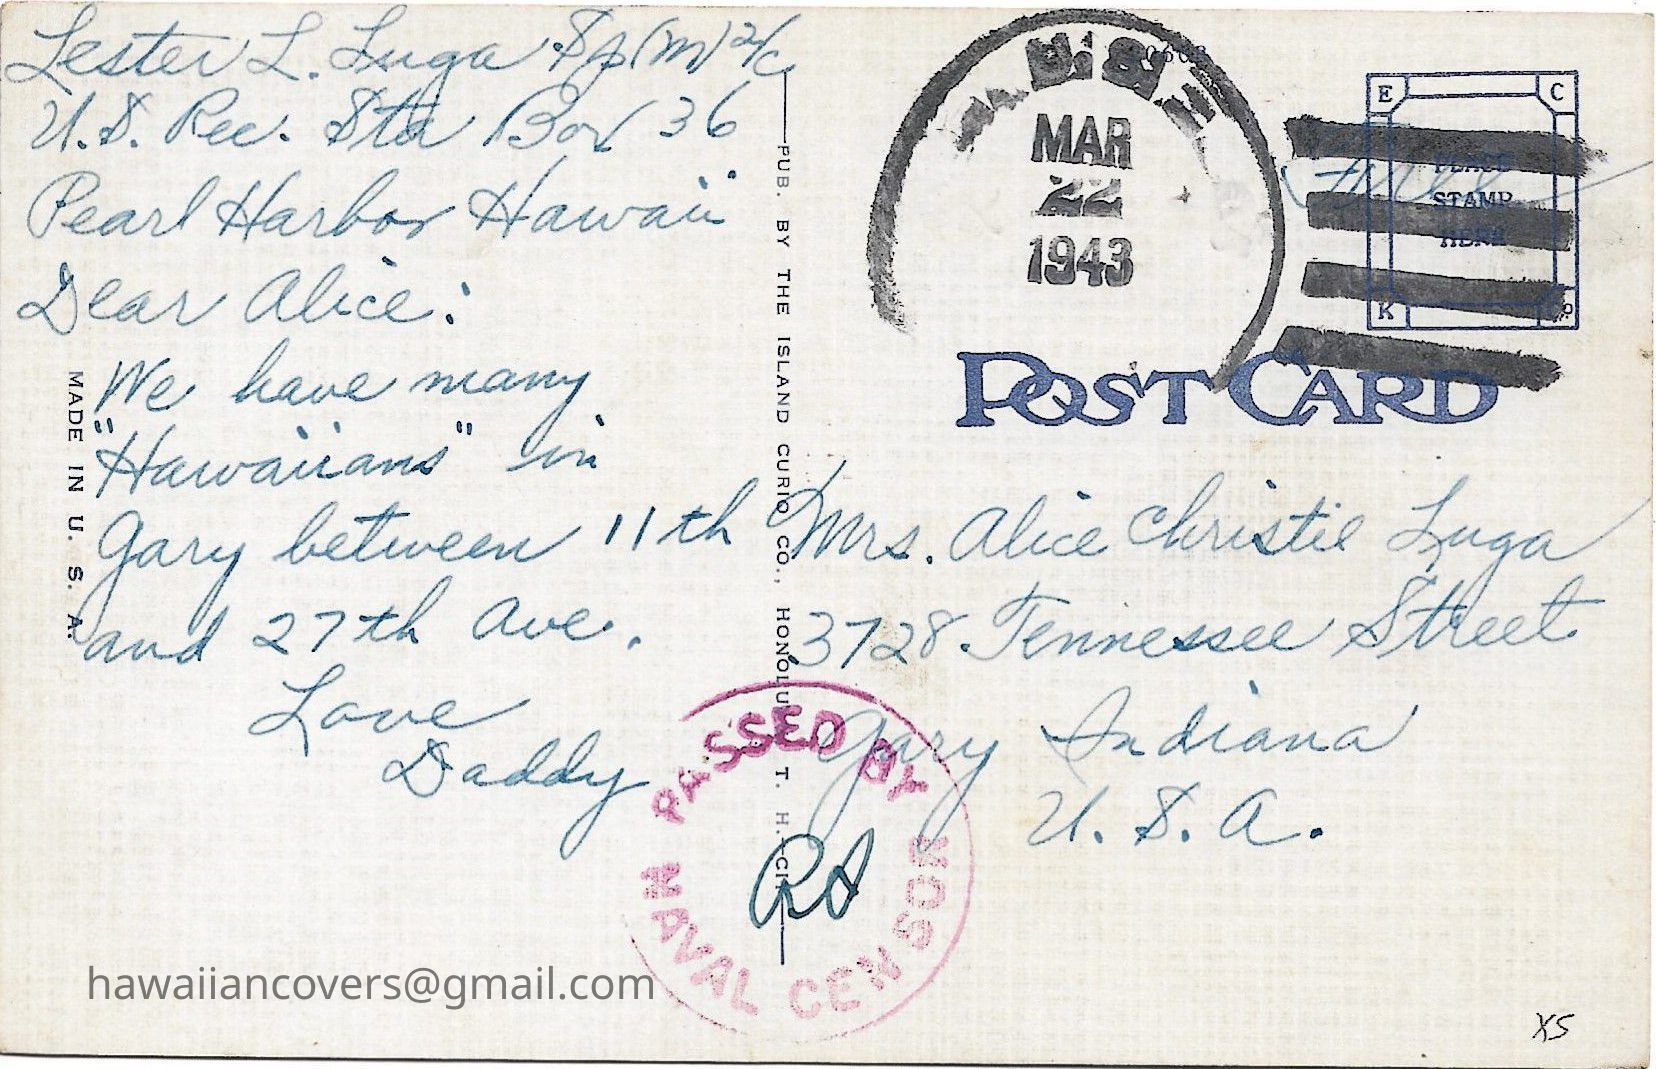 Lester L. Luga Sp(M)2/c
U.S. Rec. Sta Box 36
Pearl Harbor Hawaii
Dear Alice:
We have many
"Hawaiians" in
Gary between 11th
and 27th Ave.
Love
Daddy
MADE IN U. S. A.
PUB. BY THE ISLAND CURIO CO., HONOLULU, T. H.
MAR
22
1943
Free
E C
PLACE
STAMP
HERE
K
POST CARD
Mrs. Alice Christie Luga
3728 Tennessee Street
Gary Indiana
U. S. A.
PASSED BY
NAVAL CENSOR
RS
hawaiiancovers@gmail.com
XS